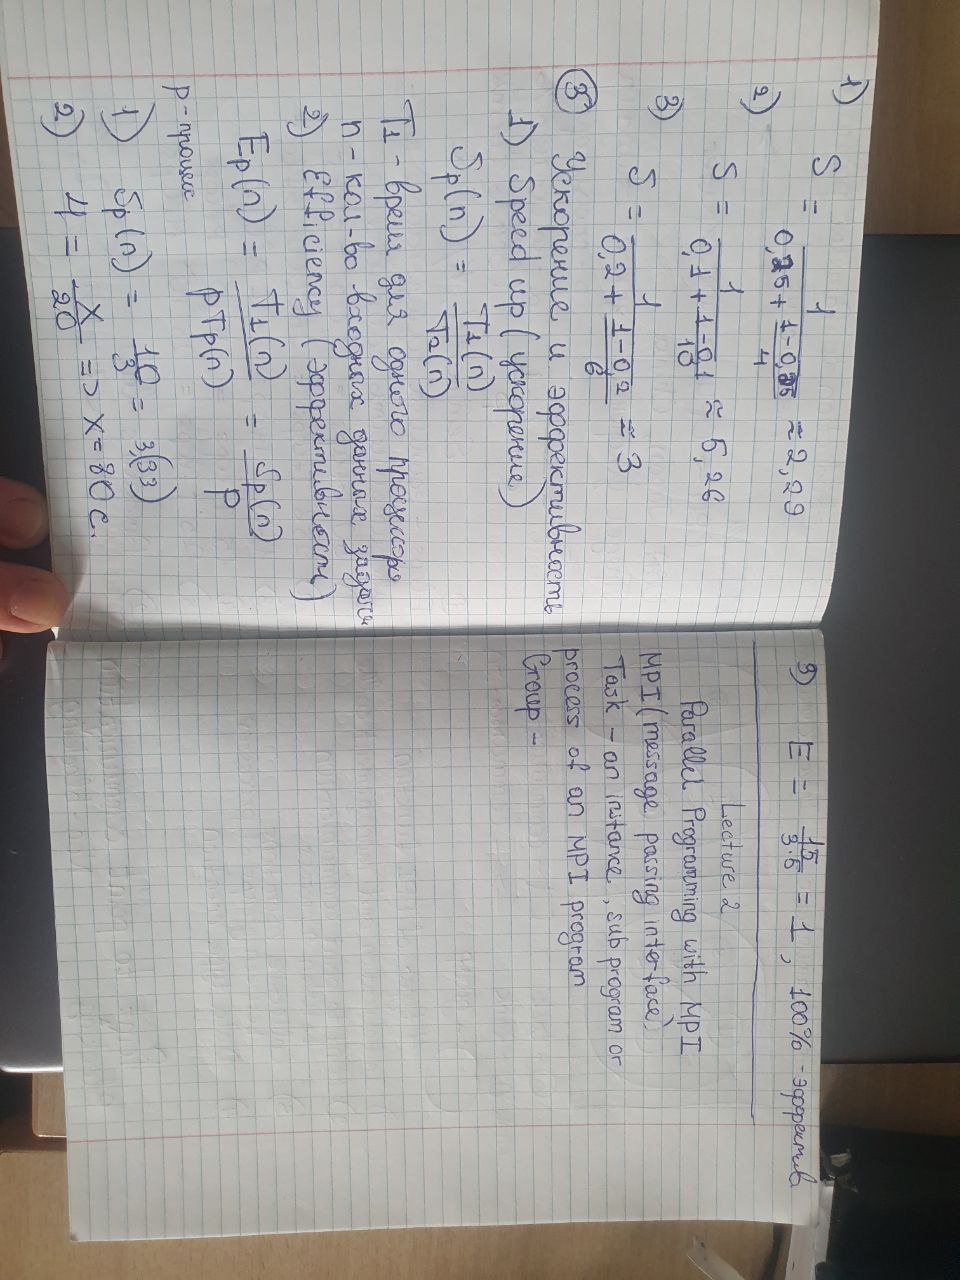 1) S = 1 / (0,25 + (1-0,25)/4) ≈ 2,29
2) S = 1 / (0,1 + (1-0,1)/10) ≈ 5,26
3) S = 1 / (0,2 + (1-0,2)/6) ≈ 3
3 Ускорение и эффективность
1) Speed up (ускорение)
Sp(n) = T1(n) / T2(n)
T1 - время для одного процессора
n - кол-во входных данных задачи
2) Efficiency (эффективность)
Ep(n) = T1(n) / pTp(n) = Sp(n) / p
p - процесс
1) Sp(n) = 10/3 = 3,(33)
2) 4 = x/20 => x = 80 с.
3) E = 15 / 3·5 = 1, 100% - эффектив
Lecture 2
Parallel Programming with MPI
MPI (message passing interface)
Task - an instance, sub program or
process of an MPI program
Group -